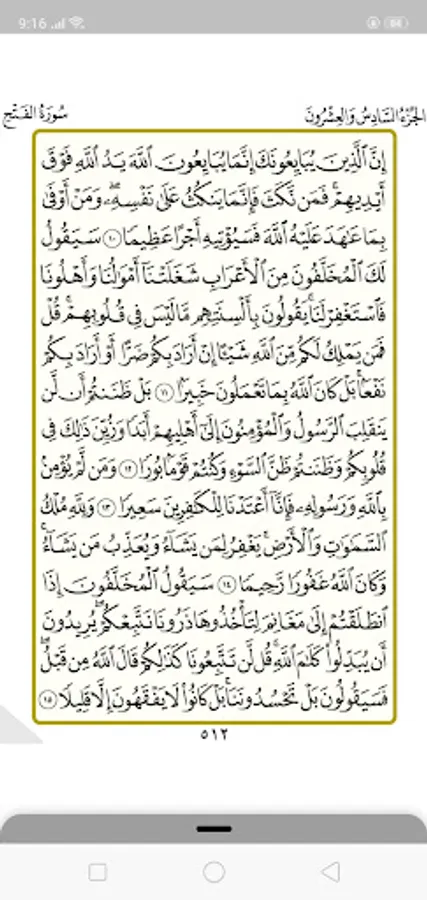 9:16
68
الجُزْءُ السَّادِسُ وَالعِشْرُونَ
سُورَةُ الفَتْحِ
إِنَّ ٱلَّذِينَ يُبَايِعُونَكَ إِنَّمَا يُبَايِعُونَ ٱللَّهَ يَدُ ٱللَّهِ فَوْقَ
أَيْدِيهِمْۚ فَمَن نَّكَثَ فَإِنَّمَا يَنكُثُ عَلَىٰ نَفْسِهِۦۖ وَمَنْ أَوْفَىٰ
بِمَا عَٰهَدَ عَلَيْهُ ٱللَّهَ فَسَيُؤْتِيهِ أَجْرًا عَظِيمًا ١٠ سَيَقُولُ
لَكَ ٱلْمُخَلَّفُونَ مِنَ ٱلْأَعْرَابِ شَغَلَتْنَآ أَمْوَٰلُنَا وَأَهْلُونَا
فَٱسْتَغْفِرْ لَنَاۚ يَقُولُونَ بِأَلْسِنَتِهِم مَّا لَيْسَ فِى قُلُوبِهِمْۚ قُلْ
فَمَن يَمْلِكُ لَكُم مِّنَ ٱللَّهِ شَيْـًٔا إِنْ أَرَادَ بِكُمْ ضَرًّا أَوْ أَرَادَ بِكُمْ
نَفْعًۢاۚ بَلْ كَانَ ٱللَّهُ بِمَا تَعْمَلُونَ خَبِيرًۢا ١١ بَلْ ظَنَنتُمْ أَن لَّن
يَنقَلِبَ ٱلرَّسُولُ وَٱلْمُؤْمِنُونَ إِلَىٰٓ أَهْلِيهِمْ أَبَدًا وَزُيِّنَ ذَٰلِكَ فِى
قُلُوبِكُمْ وَظَنَنتُمْ ظَنَّ ٱلسَّوْءِ وَكُنتُمْ قَوْمًۢا بُورًا ١٢ وَمَن لَّمْ يُؤْمِنۢ
بِٱللَّهِ وَرَسُولِهِۦ فَإِنَّآ أَعْتَدْنَا لِلْكَٰفِرِينَ سَعِيرًا ١٣ وَلِلَّهِ مُلْكُ
ٱلسَّمَٰوَٰتِ وَٱلْأَرْضِۚ يَغْفِرُ لِمَن يَشَآءُ وَيُعَذِّبُ مَن يَشَآءُۚ
وَكَانَ ٱللَّهُ غَفُورًا رَّحِيمًا ١٤ سَيَقُولُ ٱلْمُخَلَّفُونَ إِذَا
ٱنطَلَقْتُمْ إِلَىٰ مَغَانِمَ لِتَأْخُذُوهَا ذَرُونَا نَتَّبِعْكُمْۖ يُرِيدُونَ
أَن يُبَدِّلُوا۟ كَلَٰمَ ٱللَّهِۚ قُل لَّن تَتَّبِعُونَا كَذَٰلِكُمْ قَالَ ٱللَّهُ مِن قَبْلُۖ
فَسَيَقُولُونَ بَلْ تَحْسُدُونَنَاۚ بَلْ كَانُوا۟ لَا يَفْقَهُونَ إِلَّا قَلِيلًا ١٥
٥١٢